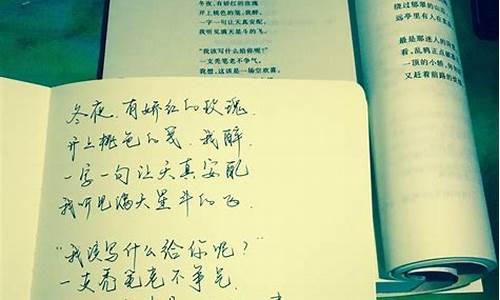 冬夜，有娇红的玫瑰
开上桃色的笺，我醉，
一字一句让天真安配，
我听见满天星斗的飞。
“我该写什么给你呢？”
一支秃笔老不争气。
我想，这该是一场空欢喜。
绕过郁翠的山
远亭里有人在
最是那迷人的
看，乱鸦正点破
一顶的小轿，
又赶着前路的
冬夜,有娇红的玫瑰,
开上桃色的笺,我醉,
一字一句让天真安配
我听见满天星斗的飞.
“我该写什么给你呢?”
一支秃笔老不争气.